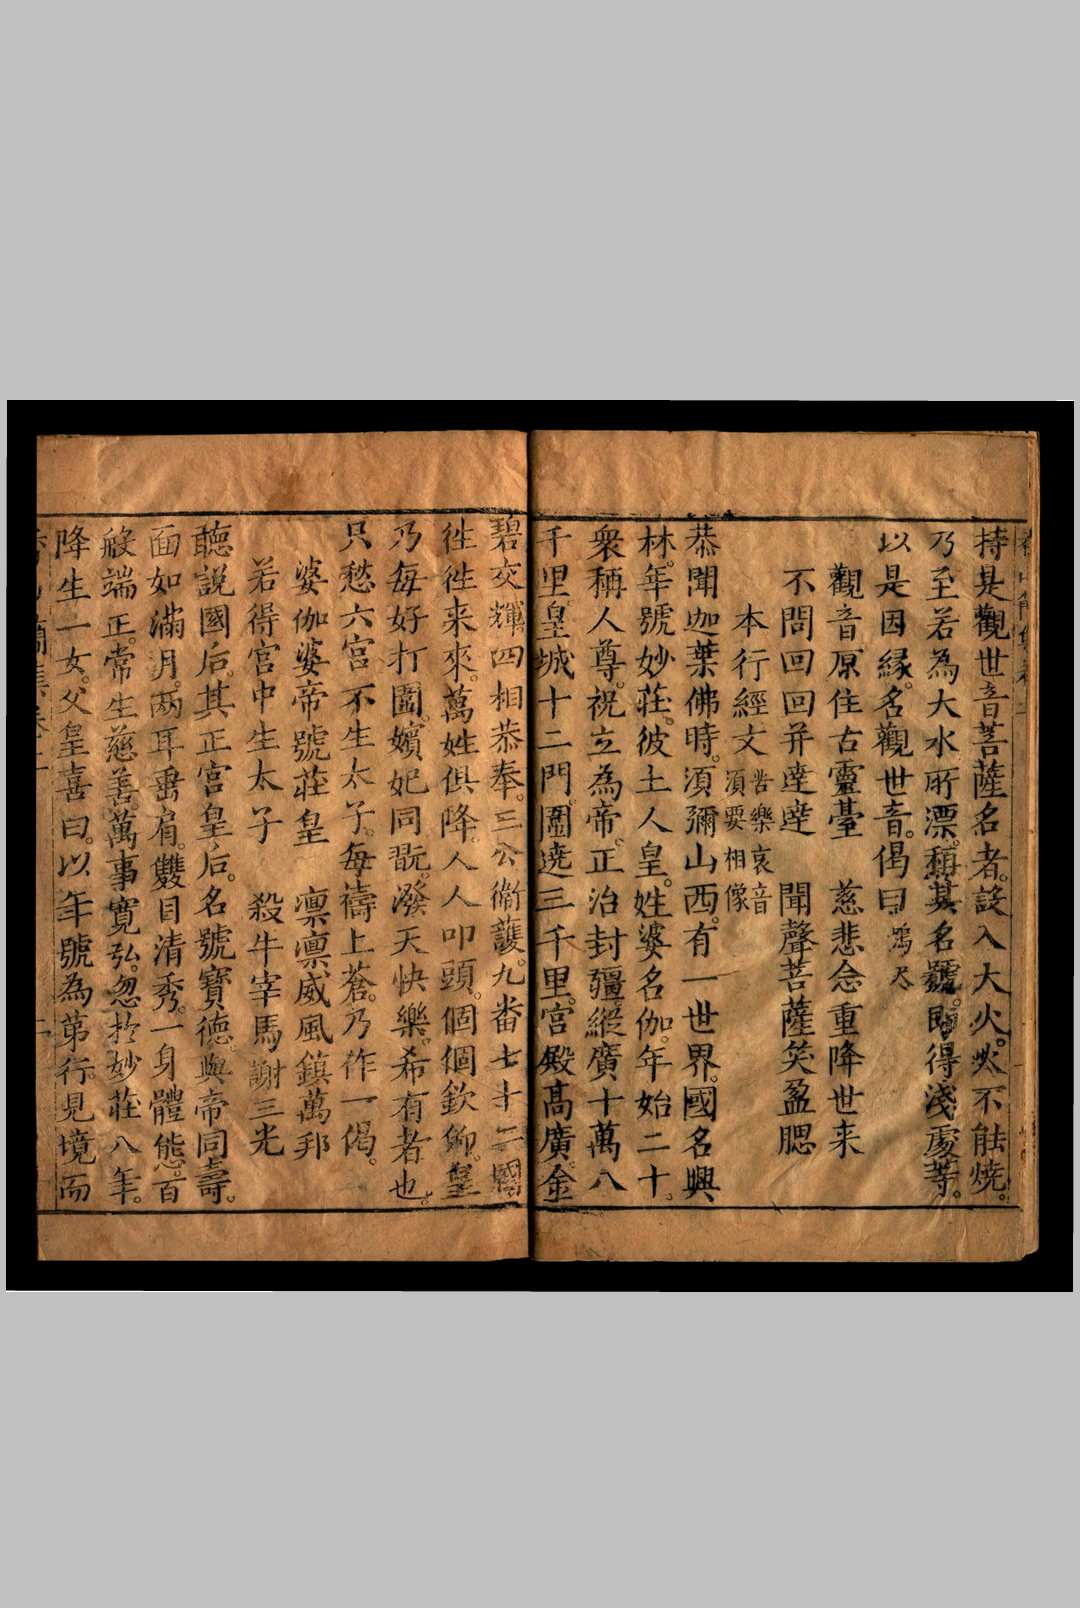 持是觀世音菩薩名者。設入大火。火不能燒。
乃至若為大水所漂。稱其名號。即得淺處等。
以是因緣。名觀世音。偈曰
觀音原住古靈臺　慈悲念重降世來
不問回回并達達　聞聲菩薩笑盈腮
本行經文 苦樂哀音 須要相像
恭聞迦葉佛時。須彌山西。有一世界。國名興
林。年號妙莊。彼土人皇。姓婆名伽。年始二十。
衆稱人尊。祝立為帝。正治封疆。縱廣十萬八
千里。皇城十二門。圍遶三千里。宮殿高廣。金
碧交輝。四相恭奉。三公衛護。九番七十二國
徃徃来來。萬姓俱降。人人叩頭。個個欽仰。皇
乃每好打圍。嬪妃同翫。潑天快樂。希有者也。
只愁六宮不生太子。每禱上蒼。乃作一偈。
婆伽婆帝號莊皇　凛凛威風鎮萬邦
若得宮中生太子　殺牛宰馬謝三光
聽說國后。其正宮皇后。名號寳德。與帝同壽。
面如滿月。兩耳垂肩。雙目清秀。一身體態。百
般端正。常生慈善。萬事寬弘。忽於妙莊八年。
降生一女。父皇喜曰。以年號為第行。見境而